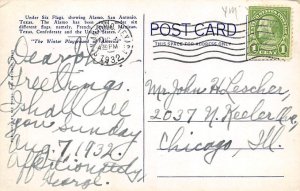 Under Six Flags, showing Alamo, San Antonio,
Texas. The Alamo has been under six
different flags, namely, French, Spanish, Mexican,
Texas, Confederate and the United States.
"The Winter Playground of America"
POST CARD
THIS SPACE FOR ADDRESS ONLY
1932
Dear
Greetings.
Shall see
you Sunday
Aug. 7, 1932.
Affectionately
George.
Mr John H Lescher
2037 N Keeler Ave
Chicago, Ill.